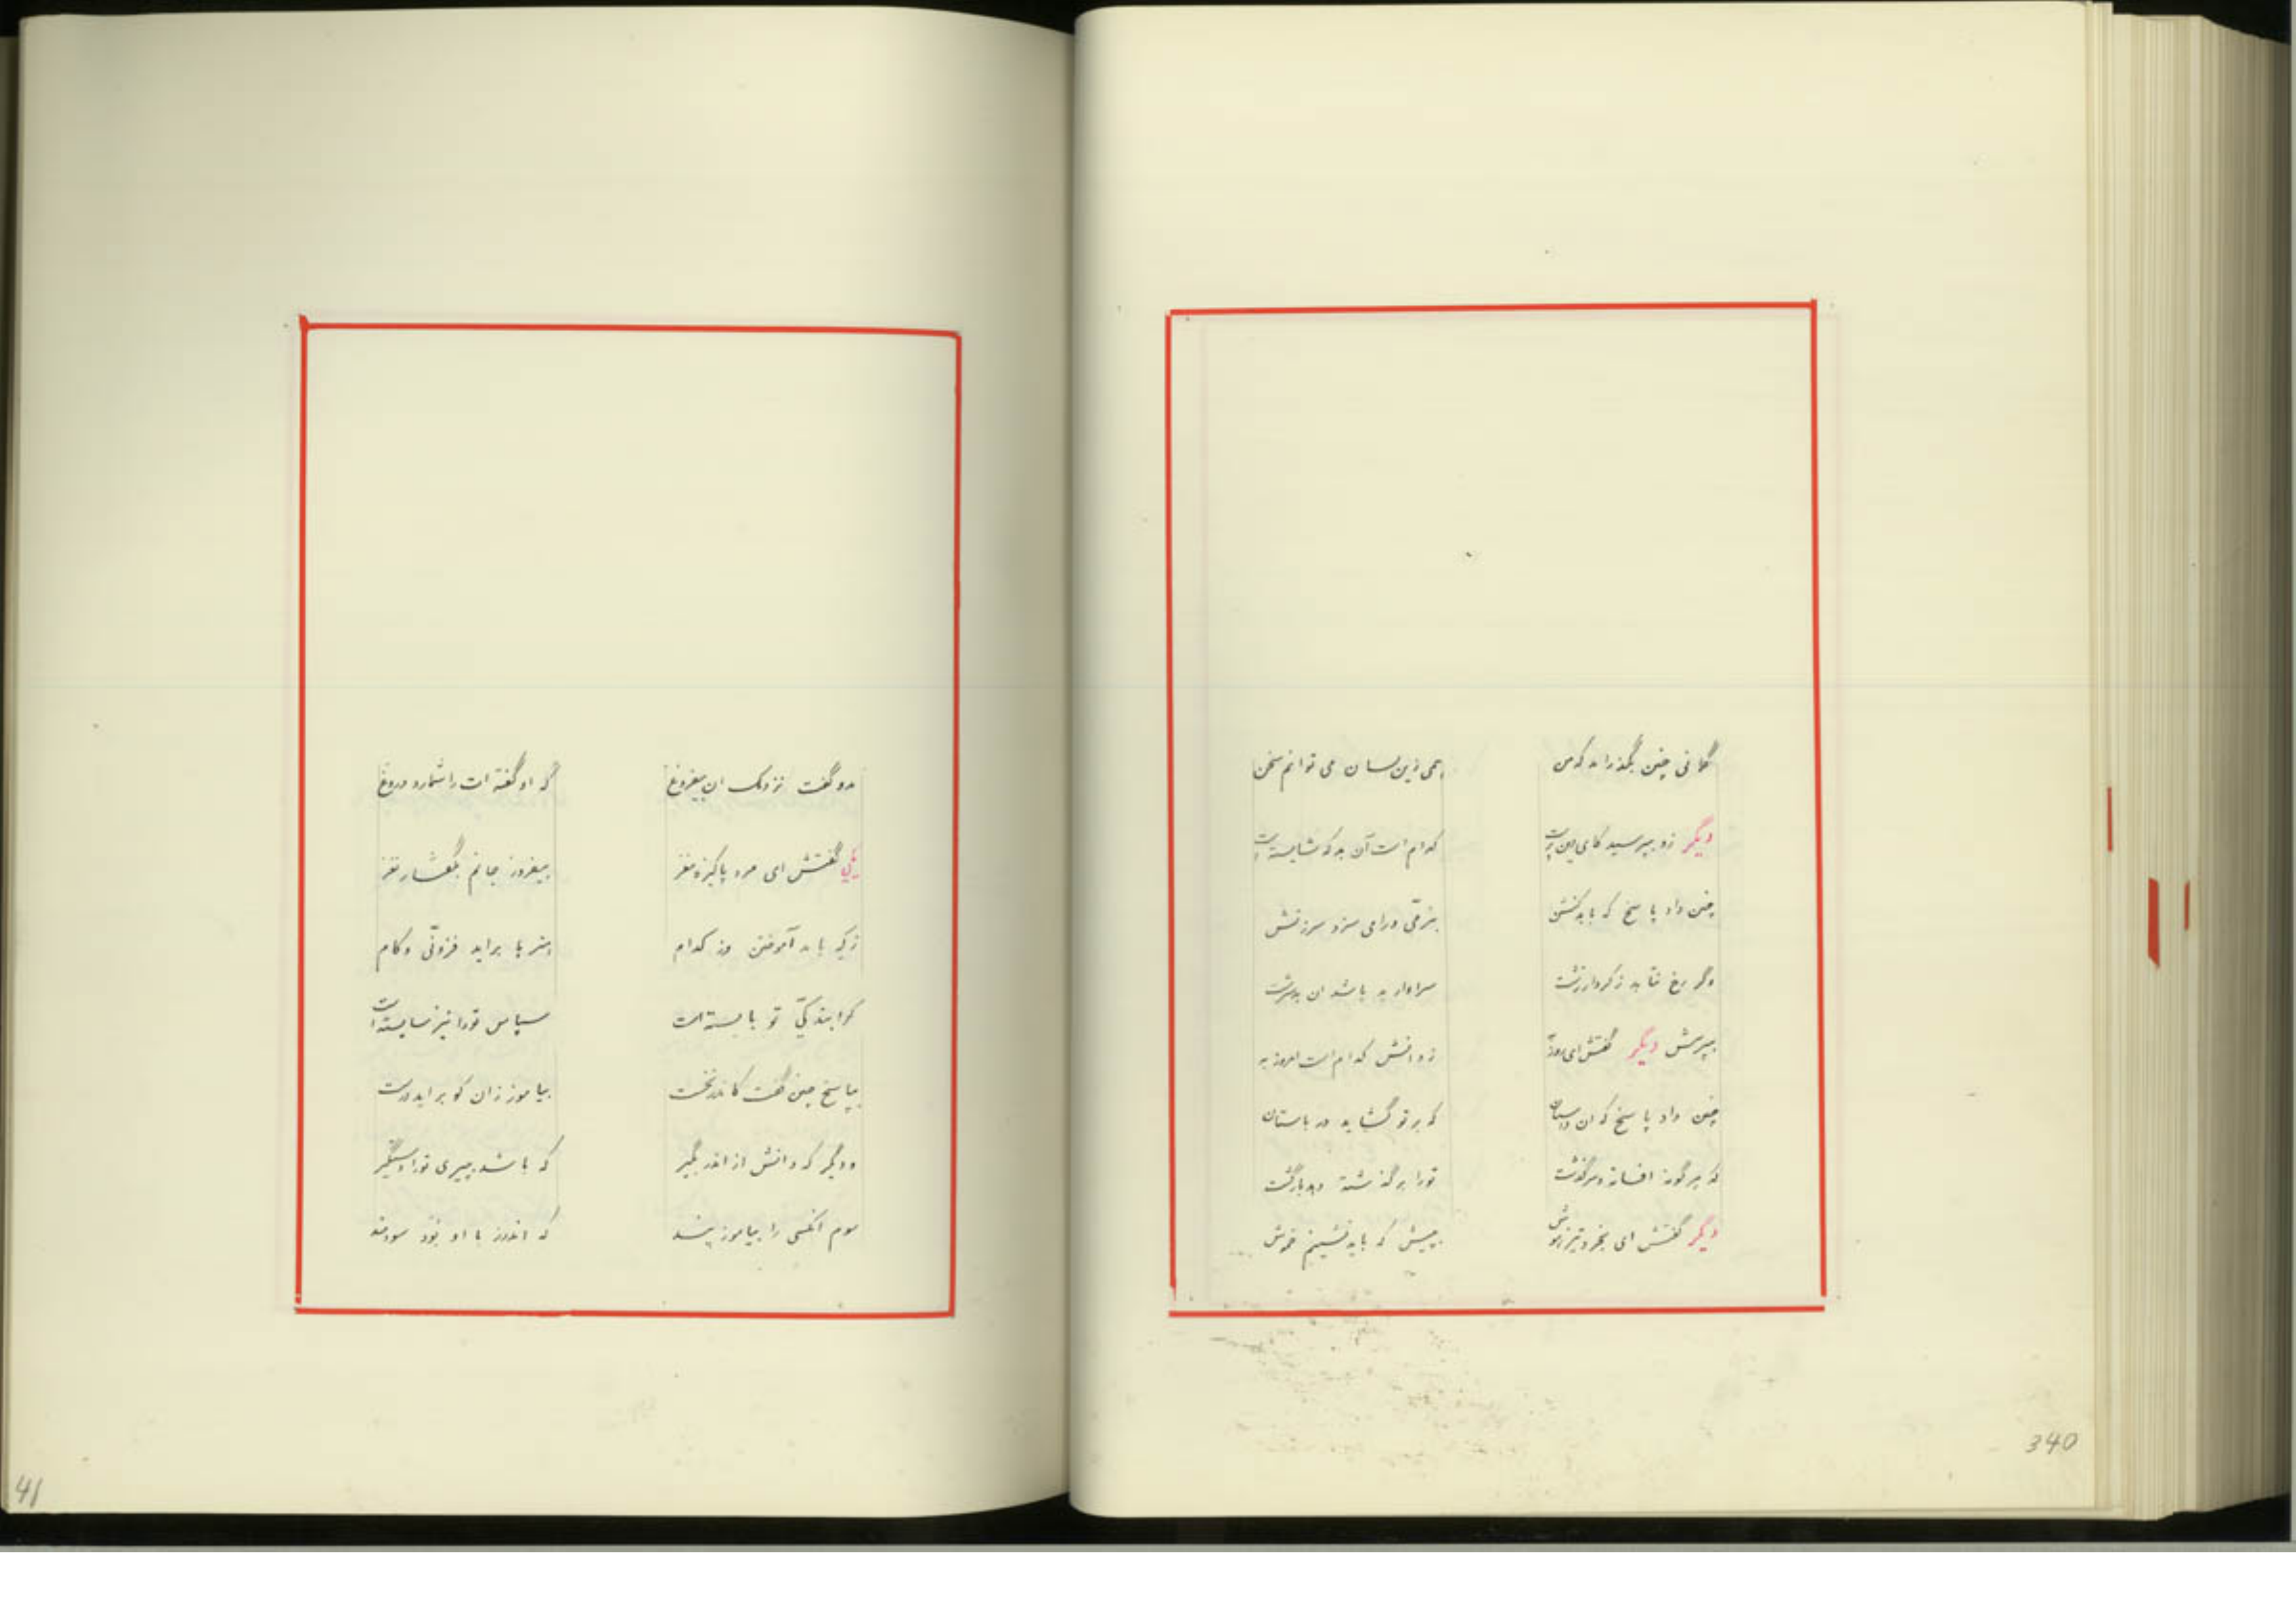 گمانی چنین بگذراند که من همی زین لسان می توانم سخن
دیگر زو بپرسید کای دین پرست کدام است آن بد که شایسته است
چنین داد پاسخ که باید کنش بنرمی درای سزد سرزنش
وگر رخ نتابد ز کردار زشت سزاوار بد باشد ان بد سرشت
بپرسش دیگر گفتش ای زو دانش کدام است امروز به
چنین داد پاسخ که ان داستان که بر تو گشاید در باستان
که هر گونه افسانه و سرگذشت تورا بر گذشته دهد بازگشت
دیگر گفتش ای بخرد تیز هوش به پیش که باید نشینم خموش
340
بدو گفت نزدیک ان بیفروغ که او گفته ات را شمارد دروغ
یکی گفتش ای مرد پاکیزه مغز بیفروز جانم بگفتار نغز
ز کی باید آموختن وز کدام هنرها براید فزونی و کام
کرا بندگی تو بایسته است سپاس تورا نیز شایسته است
بپاسخ چنین گفت کاندر نخست بیاموز زان کو براید درست
و دیگر که دانش از اندر بگیر که باشد بپیری تورا دستگیر
سوم انکسی را بیاموز پند که اندرز با او بود سودمند
41